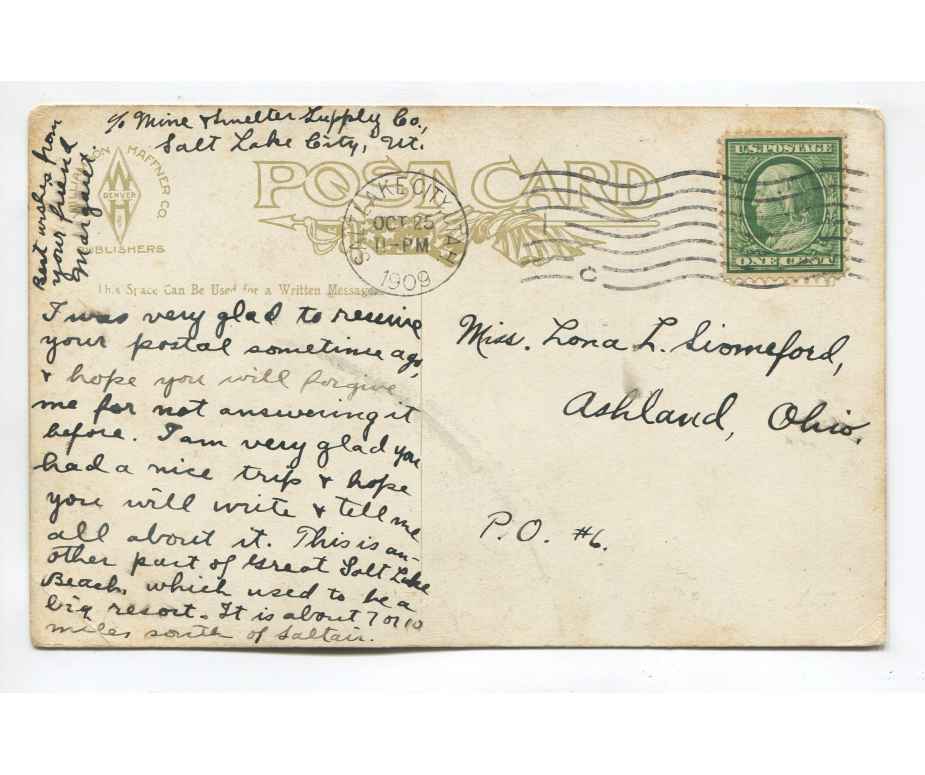 c/o Mine & Smelter Supply Co.,
Salt Lake City, Ut.
Best wishes from
your friend
Margaret.
MAFFNER CO.
DENVER
PUBLISHERS
POST CARD
SALT LAKE CITY, UTAH
OCT 25
11-PM
1909
U.S. POSTAGE
ONE CENT
This Space Can Be Used for a Written Message
I was very glad to receive
your postal sometime ago,
& hope you will forgive
me for not answering it
before. I am very glad you
had a nice trip & hope
you will write & tell me
all about it. This is an-
other part of Great Salt Lake
Beach, which used to be a
big resort. It is about 7 or 10
miles south of Saltair.
Miss. Lona L.
Ashland, Ohio.
P.O. #6.